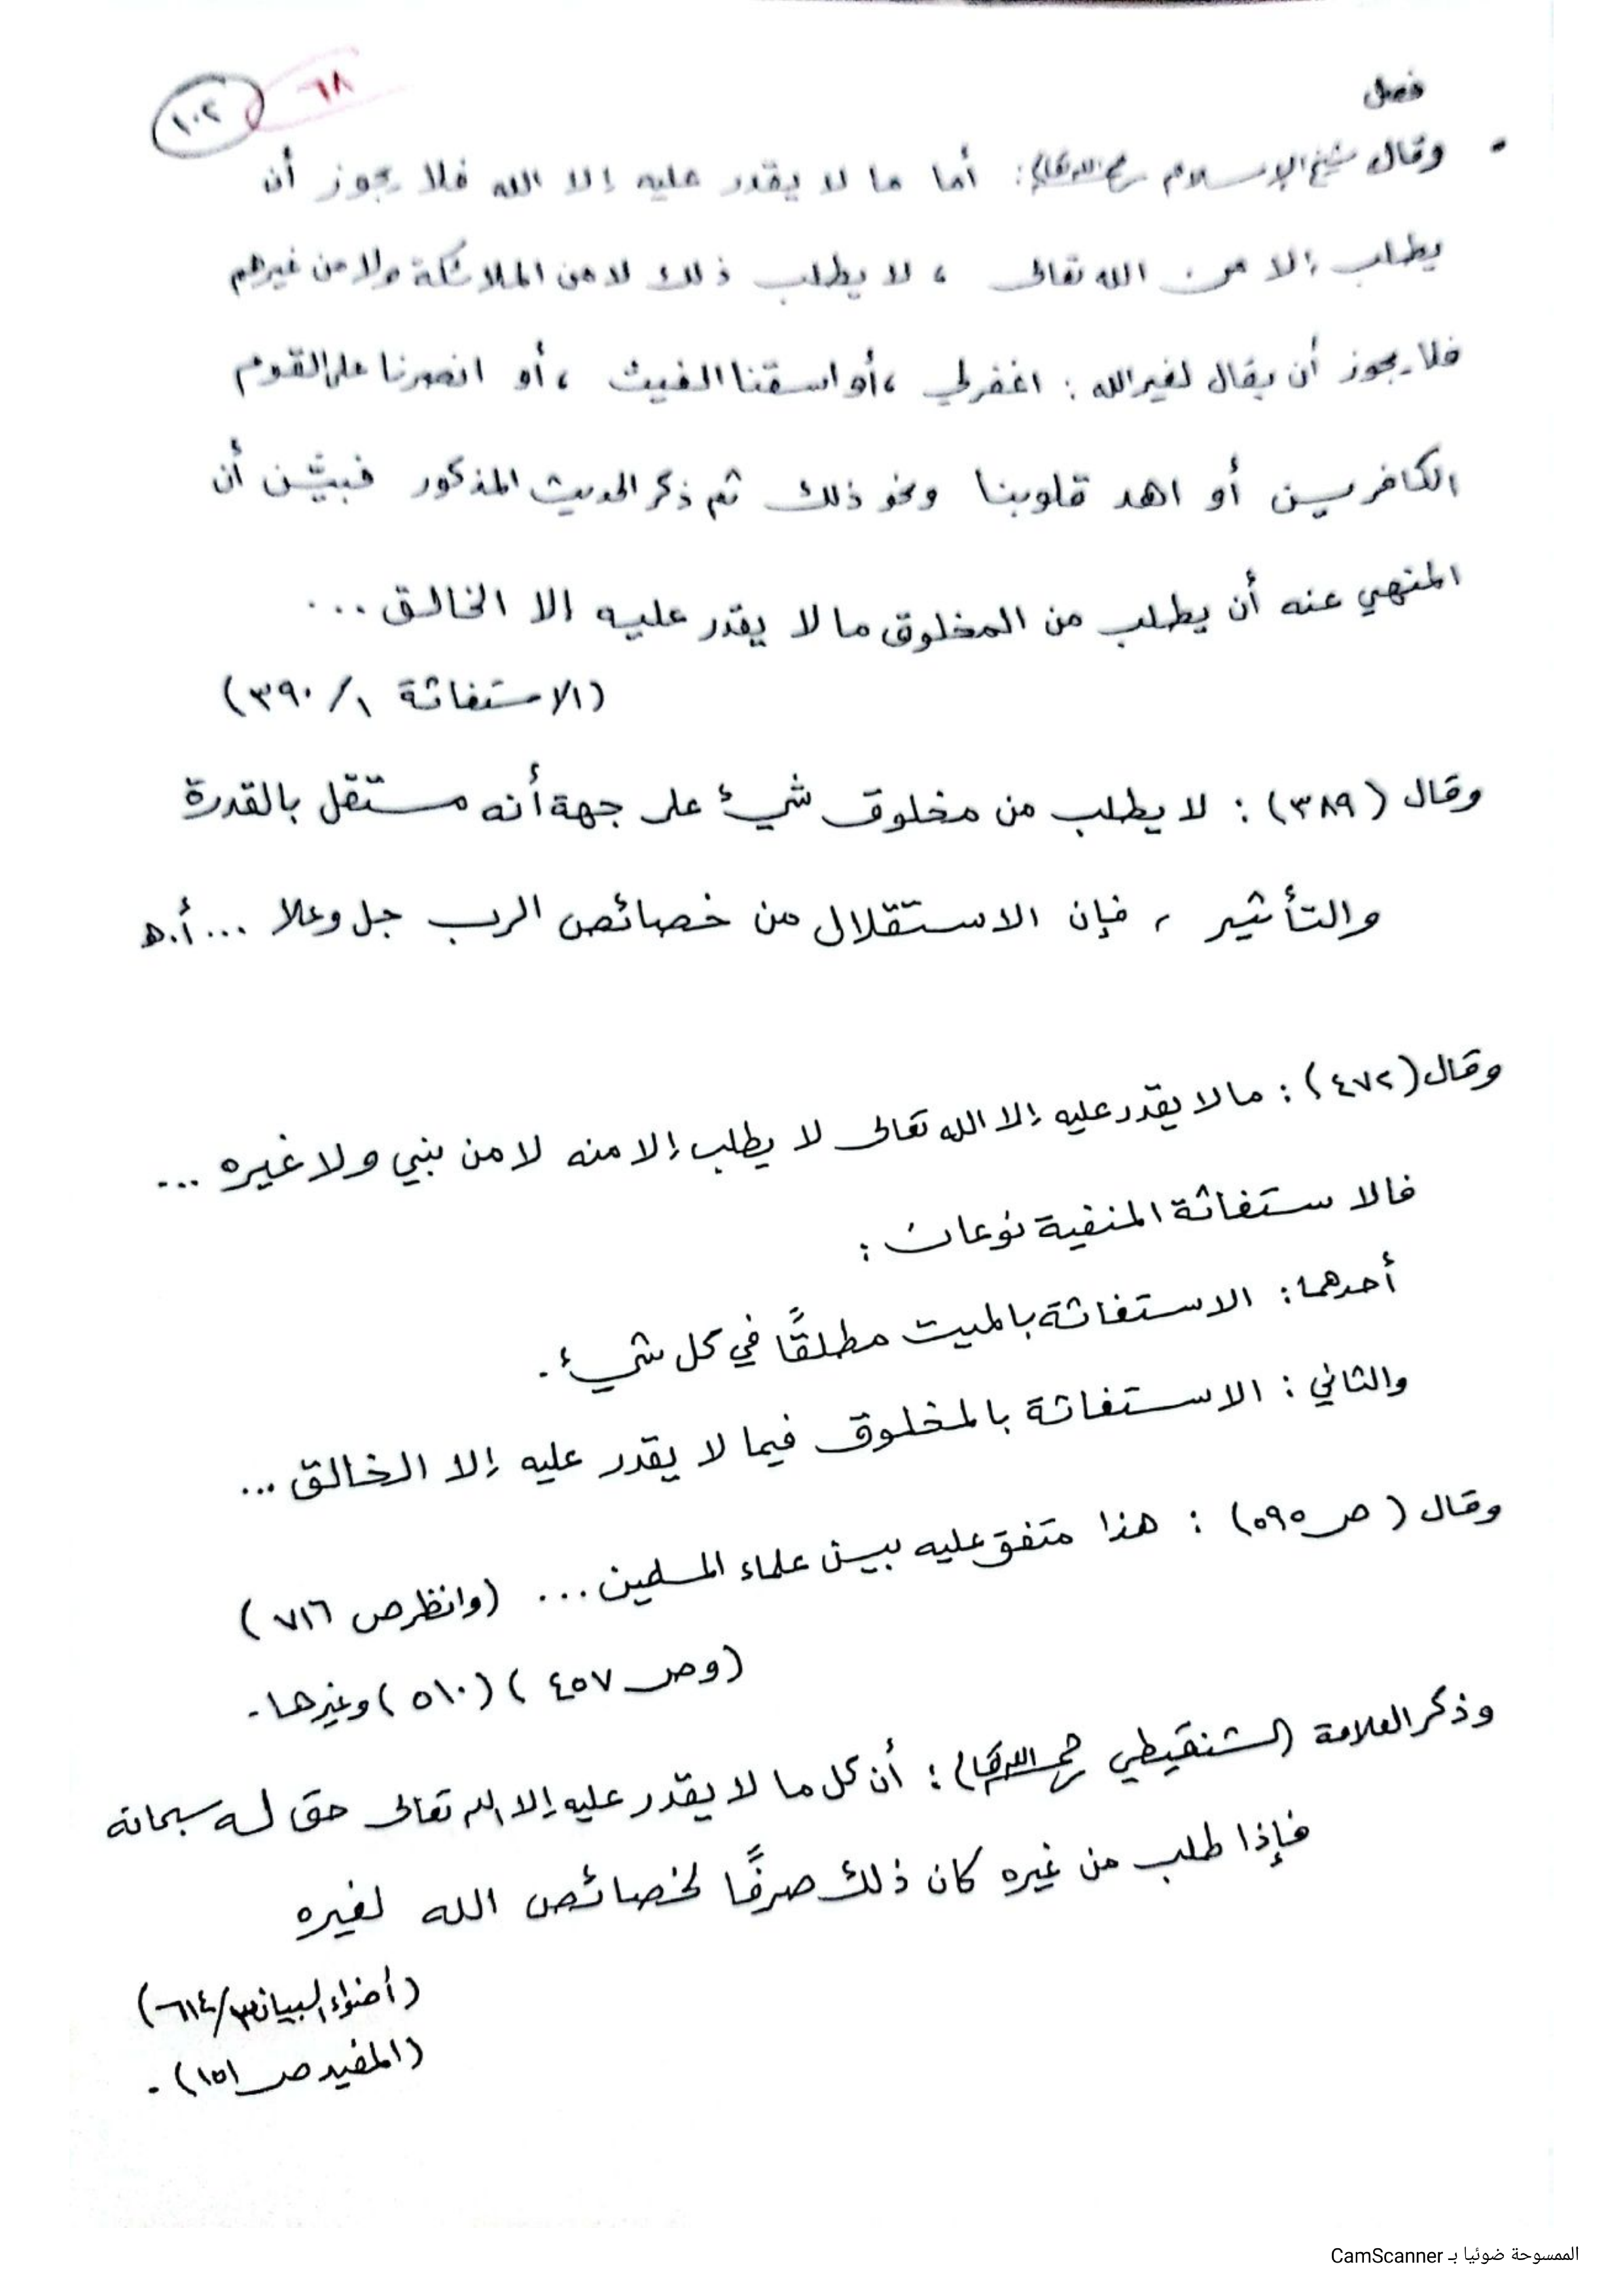 ٦٨
١٠٢
فصل
• وقال شيخ الإسلام رحمه الله تعالى: أما ما لا يقدر عليه إلا الله فلا يجوز أن
يطلب إلا من الله تعالى ، لا يطلب ذلك لا من الملائكة ولا من غيرهم
فلا يجوز أن يقال لغير الله : اغفر لي ، أو اسقنا الغيث ، أو انصرنا على القوم
الكافرين أو اهد قلوبنا ونحو ذلك ثم ذكر الحديث المذكور فبيّن أن
المنهي عنه أن يطلب من المخلوق ما لا يقدر عليه إلا الخالق ...
(الاستغاثة ١/ ٣٩٠)
وقال (٣٨٩) : لا يطلب من مخلوق شيء على جهة أنه مستقل بالقدرة
والتأثير ، فإن الاستقلال من خصائص الرب جل وعلا ... أ.هـ
وقال (٤٧٢) : ما لا يقدر عليه إلا الله تعالى لا يطلب إلا منه لا من نبي ولا غيره ...
فالاستغاثة المنفية نوعان :
أحدهما : الاستغاثة بالميت مطلقًا في كل شيء .
والثاني : الاستغاثة بالمخلوق فيما لا يقدر عليه إلا الخالق ...
وقال ( ص ٥٩٥) : هذا متفق عليه بين علماء المسلمين ... (وانظر ص ٧١٦ )
(وص ٤٥٧ ) (٥١٠ ) وغيرها .
وذكر العلامة الشنقيطي رحمه الله تعالى : أن كل ما لا يقدر عليه إلا الله تعالى حق له سبحانه
فإذا طلب من غيره كان ذلك صرفًا لخصائص الله لغيره
(أضواء البيان ٣/ ٦١٤)
(المفيد ص ١٥١) .
الممسوحة ضوئيا بـ CamScanner